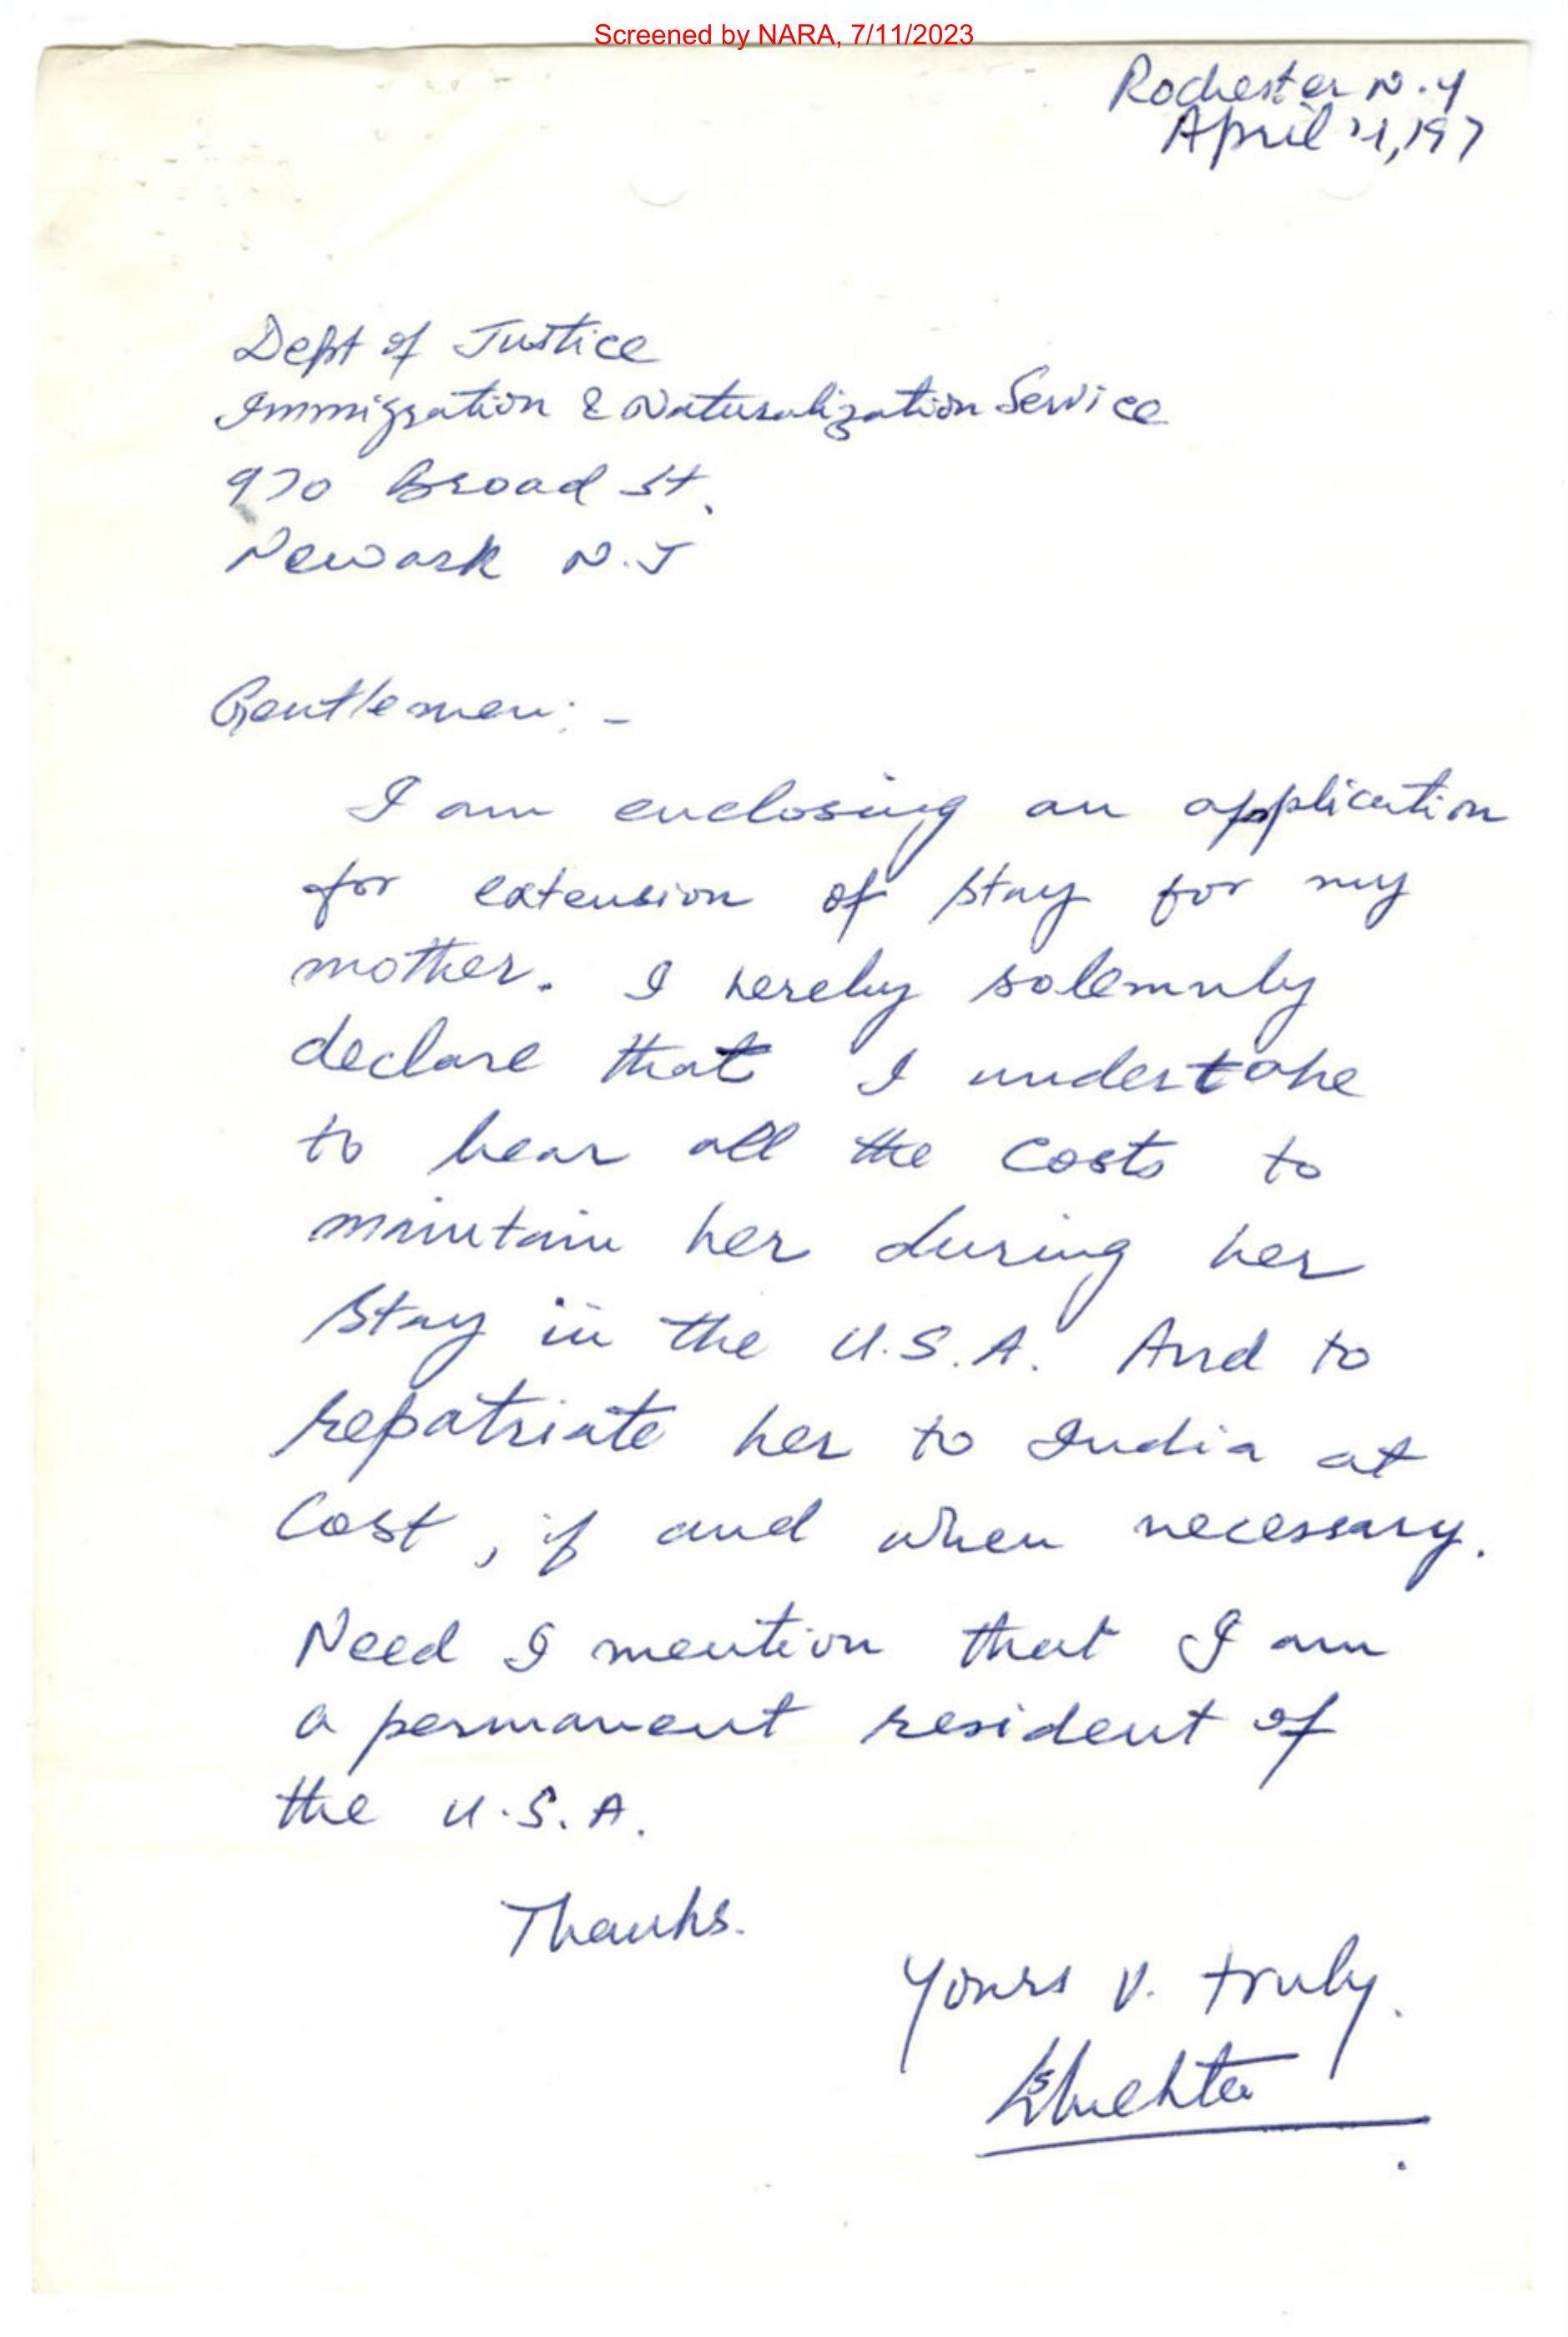 Screened by NARA, 7/11/2023
Rochester N.Y
April 21, 197
Dept of Justice
Immigration & Naturalization Service
970 Broad St.
Newark N.J
Gentlemen: -
I am enclosing an application
for extension of stay for my
mother. I hereby solemnly
declare that I undertake
to bear all the costs to
maintain her during her
stay in the U.S.A. And to
repatriate her to India at
Cost, if and when necessary.
Need I mention that I am
a permanent resident of
the U.S.A.
Thanks.
Yours v. truly.